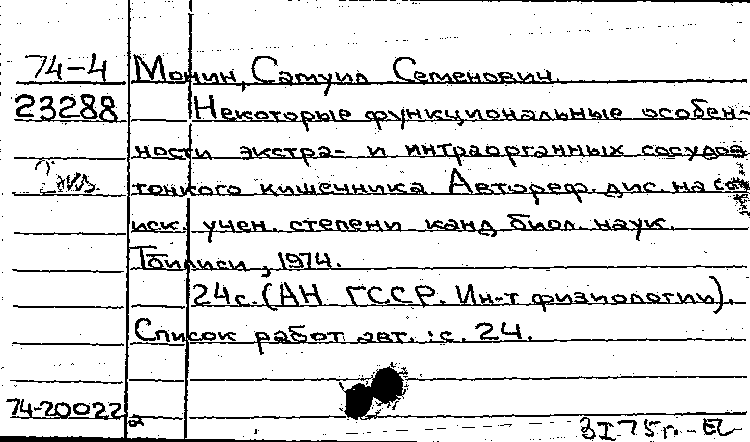 74-4 Монин, Самуил Семенович.
23288 Некоторые функциональные особен-
ности экстра- и интраорганных сосудов
тонкого кишечника. Автореф. дис. на со
иск. учен. степени канд. биол. наук.
Тбилиси, 1974.
24с. (АН ГССР. Ин-т физиологии).
Список работ авт.: с. 24.
74-20022